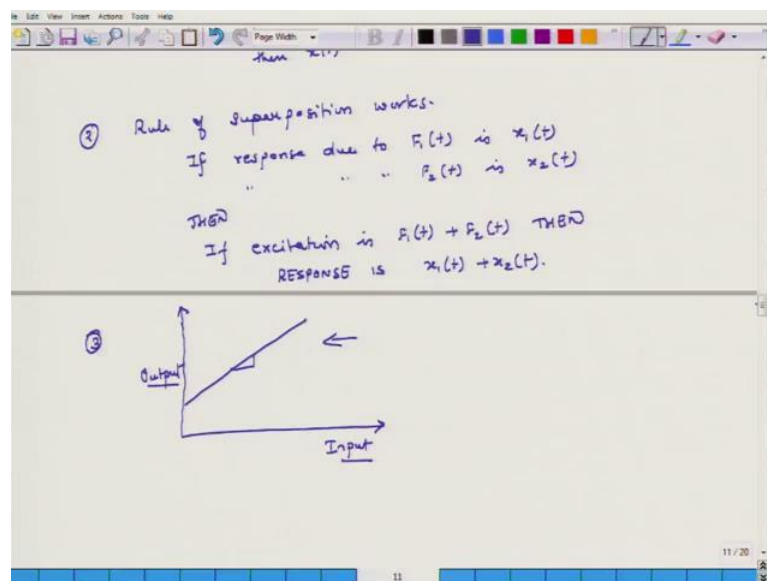 Edit View Insert Actions Tools Help
Page Width
then x(t)
② Rule of superposition works.
If response due to F₁(t) is x₁(t)
" " " F₂(t) is x₂(t)
THEN
If excitation is F₁(t) + F₂(t) THEN
RESPONSE IS x₁(t) + x₂(t).
③
Output
Input
11 / 20
11